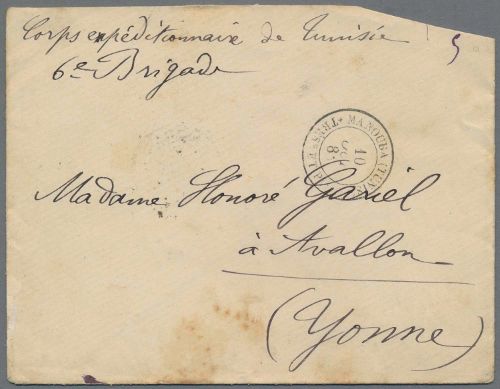 Corps expéditionnaire de Tunisie
6e Brigade
5
TRES. ET MANOUBA (TUNIS
10
8
Madame Honoré Gariel
à Avallon
(Yonne)